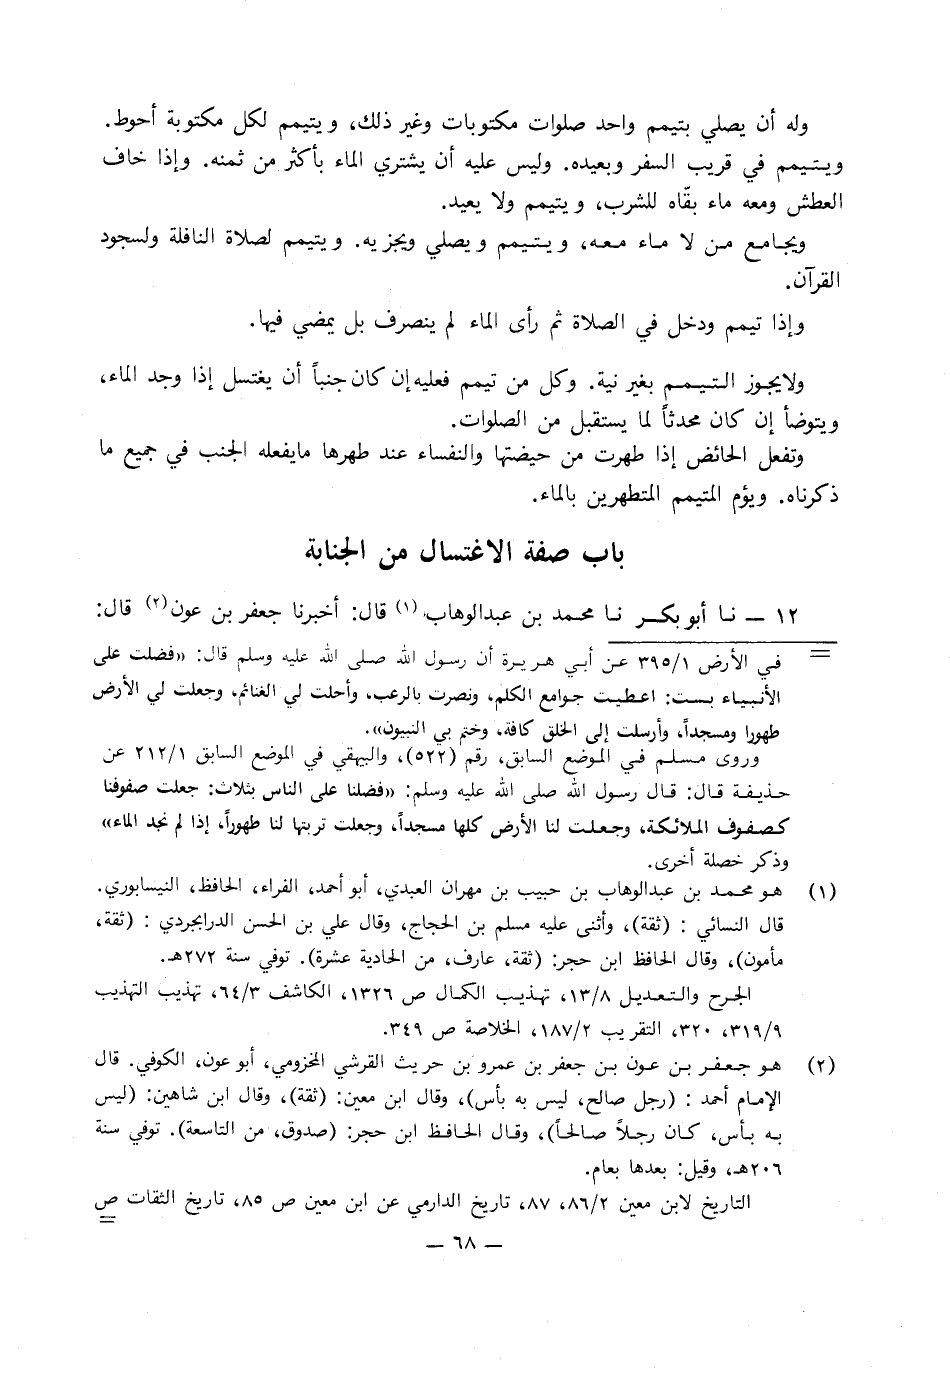 وله أن يصلي بتيمم واحد صلوات مكتوبات وغير ذلك، ويتيمم لكل مكتوبة أحوط.
ويتيمم في قريب السفر وبعيده. وليس عليه أن يشتري الماء بأكثر من ثمنه. وإذا خاف
العطش ومعه ماء بقّاه للشرب، ويتيمم ولا يعيد.
ويجامع من لا ماء معه، ويتيمم ويصلي ويجزيه. ويتيمم لصلاة النافلة ولسجود
القرآن.
وإذا تيمم ودخل في الصلاة ثم رأى الماء لم ينصرف بل يمضي فيها.
ولايجوز التيمم بغير نية. وكل من تيمم فعليه إن كان جنباً أن يغتسل إذا وجد الماء،
ويتوضأ إن كان محدثاً لما يستقبل من الصلوات.
وتفعل الحائض إذا طهرت من حيضتها والنفساء عند طهرها مايفعله الجنب في جميع ما
ذكرناه. ويؤم المتيمم المتطهرين بالماء.
باب صفة الاغتسال من الجنابة
١٢ — نا أبو بكر نا محمد بن عبدالوهاب(١) قال: أخبرنا جعفر بن عون(٢) قال:
= في الأرض ٣٩٥/١ عن أبي هريرة أن رسول الله صلى الله عليه وسلم قال: «فضلت على
الأنبياء بست: اعطيت جوامع الكلم، ونصرت بالرعب، وأحلت لي الغنائم، وجعلت لي الأرض
طهورا ومسجداً، وأرسلت إلى الخلق كافة، وختم بي النبيون».
وروى مسلم في الموضع السابق، رقم (٥٢٢)، والبيهقي في الموضع السابق ٢١٢/١ عن
حذيفة قال: قال رسول الله صلى الله عليه وسلم: «فضلنا على الناس بثلاث: جعلت صفوفنا
كصفوف الملائكة، وجعلت لنا الأرض كلها مسجداً، وجعلت تربتها لنا طهوراً، إذا لم نجد الماء»
وذكر خصلة أخرى.
(١) هو محمد بن عبدالوهاب بن حبيب بن مهران العبدي، أبو أحمد، الفراء، الحافظ، النيسابوري.
قال النسائي : (ثقة)، وأثنى عليه مسلم بن الحجاج، وقال علي بن الحسن الدرابجردي : (ثقة،
مأمون)، وقال الحافظ ابن حجر: (ثقة، عارف، من الحادية عشرة). توفي سنة ٢٧٢هـ.
الجرح والتعديل ١٣/٨، تهذيب الكمال ص ١٣٢٦، الكاشف ٦٤/٣، تهذيب التهذيب
٣١٩/٩، ٣٢٠، التقريب ١٨٧/٢، الخلاصة ص ٣٤٩.
(٢) هو جعفر بن عون بن جعفر بن عمرو بن حريث القرشي المخزومي، أبو عون، الكوفي. قال
الإمام أحمد : (رجل صالح، ليس به بأس)، وقال ابن معين: (ثقة)، وقال ابن شاهين: (ليس
به بأس، كان رجلاً صالحاً)، وقال الحافظ ابن حجر: (صدوق، من التاسعة). توفي سنة
٢٠٦هـ، وقيل: بعدها بعام.
التاريخ لابن معين ٨٦/٢، ٨٧، تاريخ الدارمي عن ابن معين ص ٨٥، تاريخ الثقات ص
=
— ٦٨ —